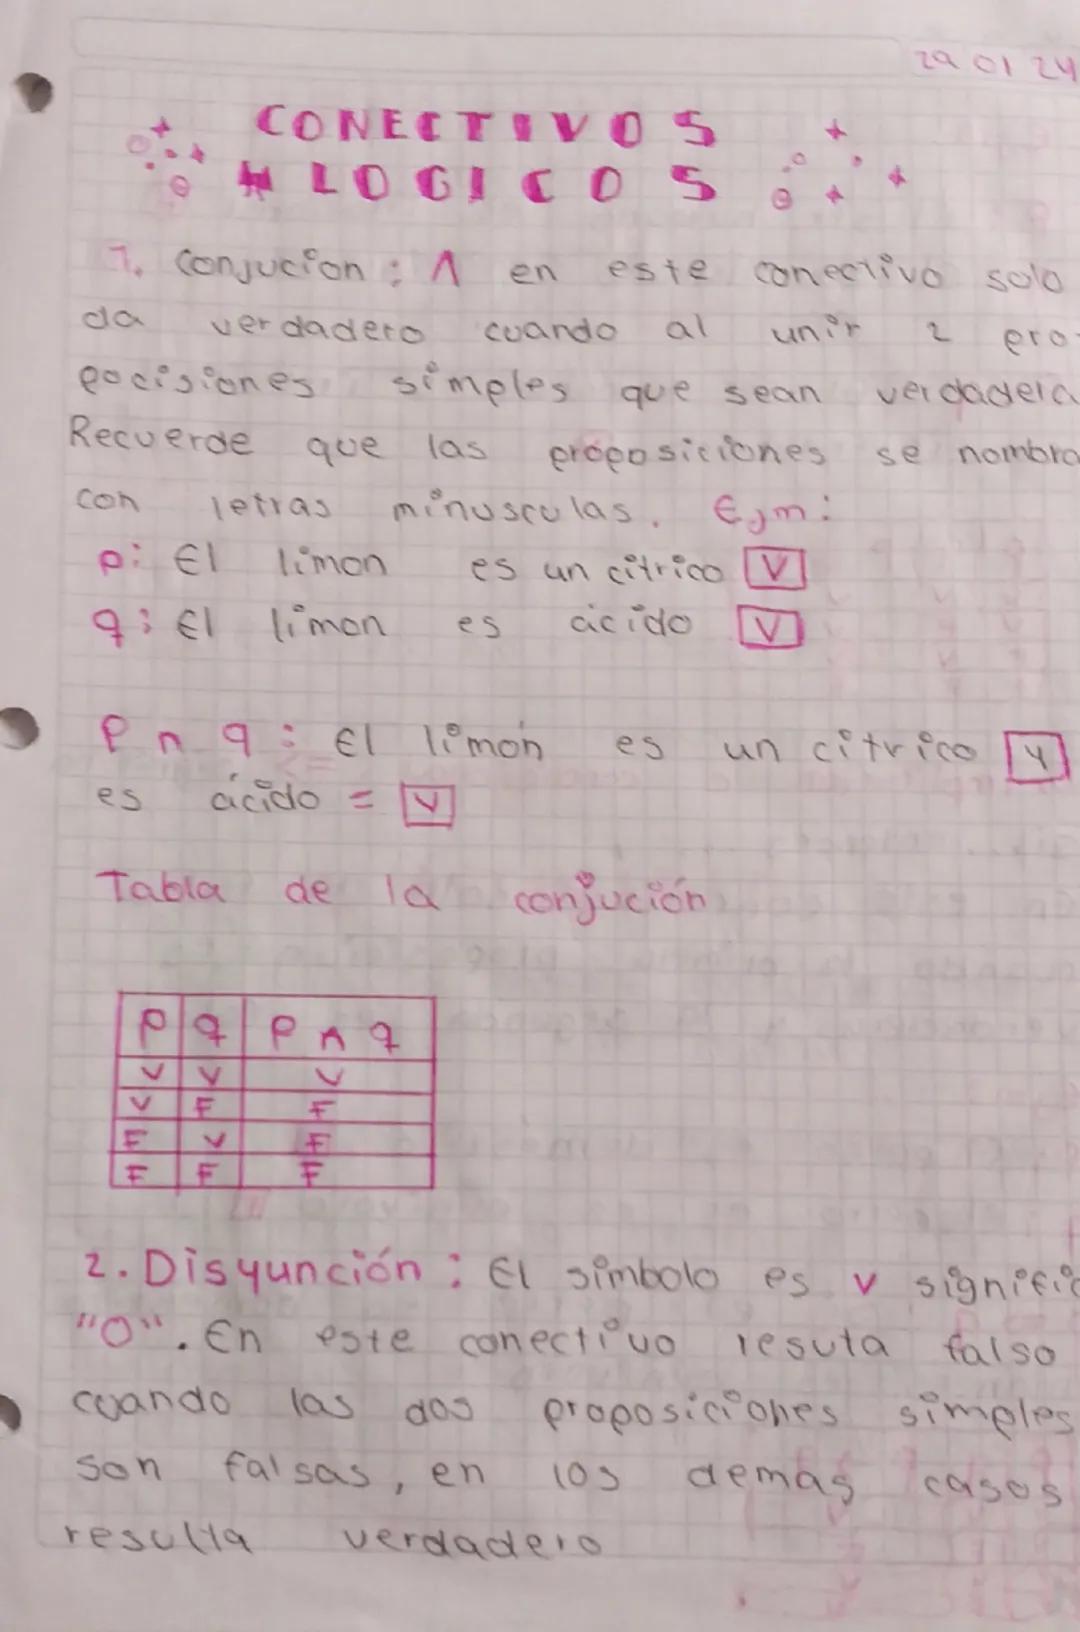 29 01 24
CONECTIVOS
LOGICOS
1. Conjucion : ∧ en este conectivo solo
da verdadero cuando al unir 2 pro-
pocisiones simples que sean verdadera
Recuerde que las proposiciones se nombra
con letras minusculas. Ejm:
p: El limon es un citrico V
q: El limon es ácido V
P ∧ q : El limón es un citrico y
es ácido = V
Tabla de la conjución
P q P ∧ q
V V V
V F F
F V F
F F F
2. Disyunción : El simbolo es v signific
"O". En este conectivo resuta falso
cuando las dos proposiciones simples
son falsas, en los demas casos
resulta verdadero